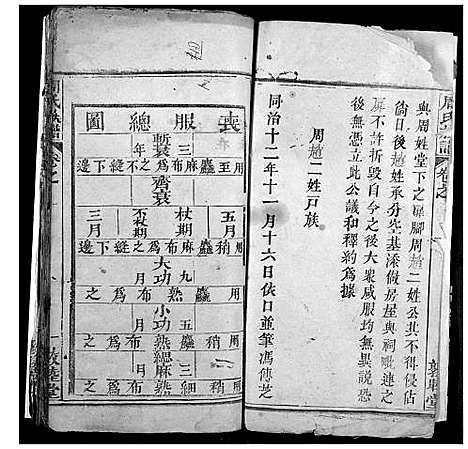 周氏宗譜 卷之
與周姓堂下之屏腳周趙二姓公共不得侵佔
倘日後趙姓承分空基添做房屋與祠毗連之
屏不許折毀自今之後大衆咸服均無異說恐
後無憑立此公議和釋約爲據
周趙二姓戸族
同治十二年十一月十六日依口並筆馮傳芝
敦睦堂
喪服總圖
斬衰
三年
用至麤麻布爲之不縫下邊
齊衰
五月
杖期
不杖期
三月
用稍麤麻布爲之縫下邊
大功
九月
用麤熟布爲之
小功
五月
用稍熟布爲之
緦麻
三月
用稍細熟布爲之
卷之一